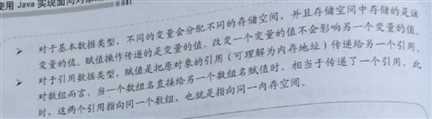 使用 Java 实现面向对
➢ 对于基本数据类型，不同的变量会分配不同的存储空间，并且存储空间中存储的是该
变量的值。赋值操作传递的是变量的值，改变一个变量的值不会影响另一个变量的值。
➢ 对于引用数据类型，赋值是把原对象的引用（可理解为内存地址）传递给另一个引用。
对数组而言，当一个数组名直接给另一个数组名赋值时，相当于传递了一个引用，此
时，这两个引用指向同一个数组，也就是指向同一内存空间。